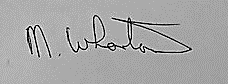 M. Wharton